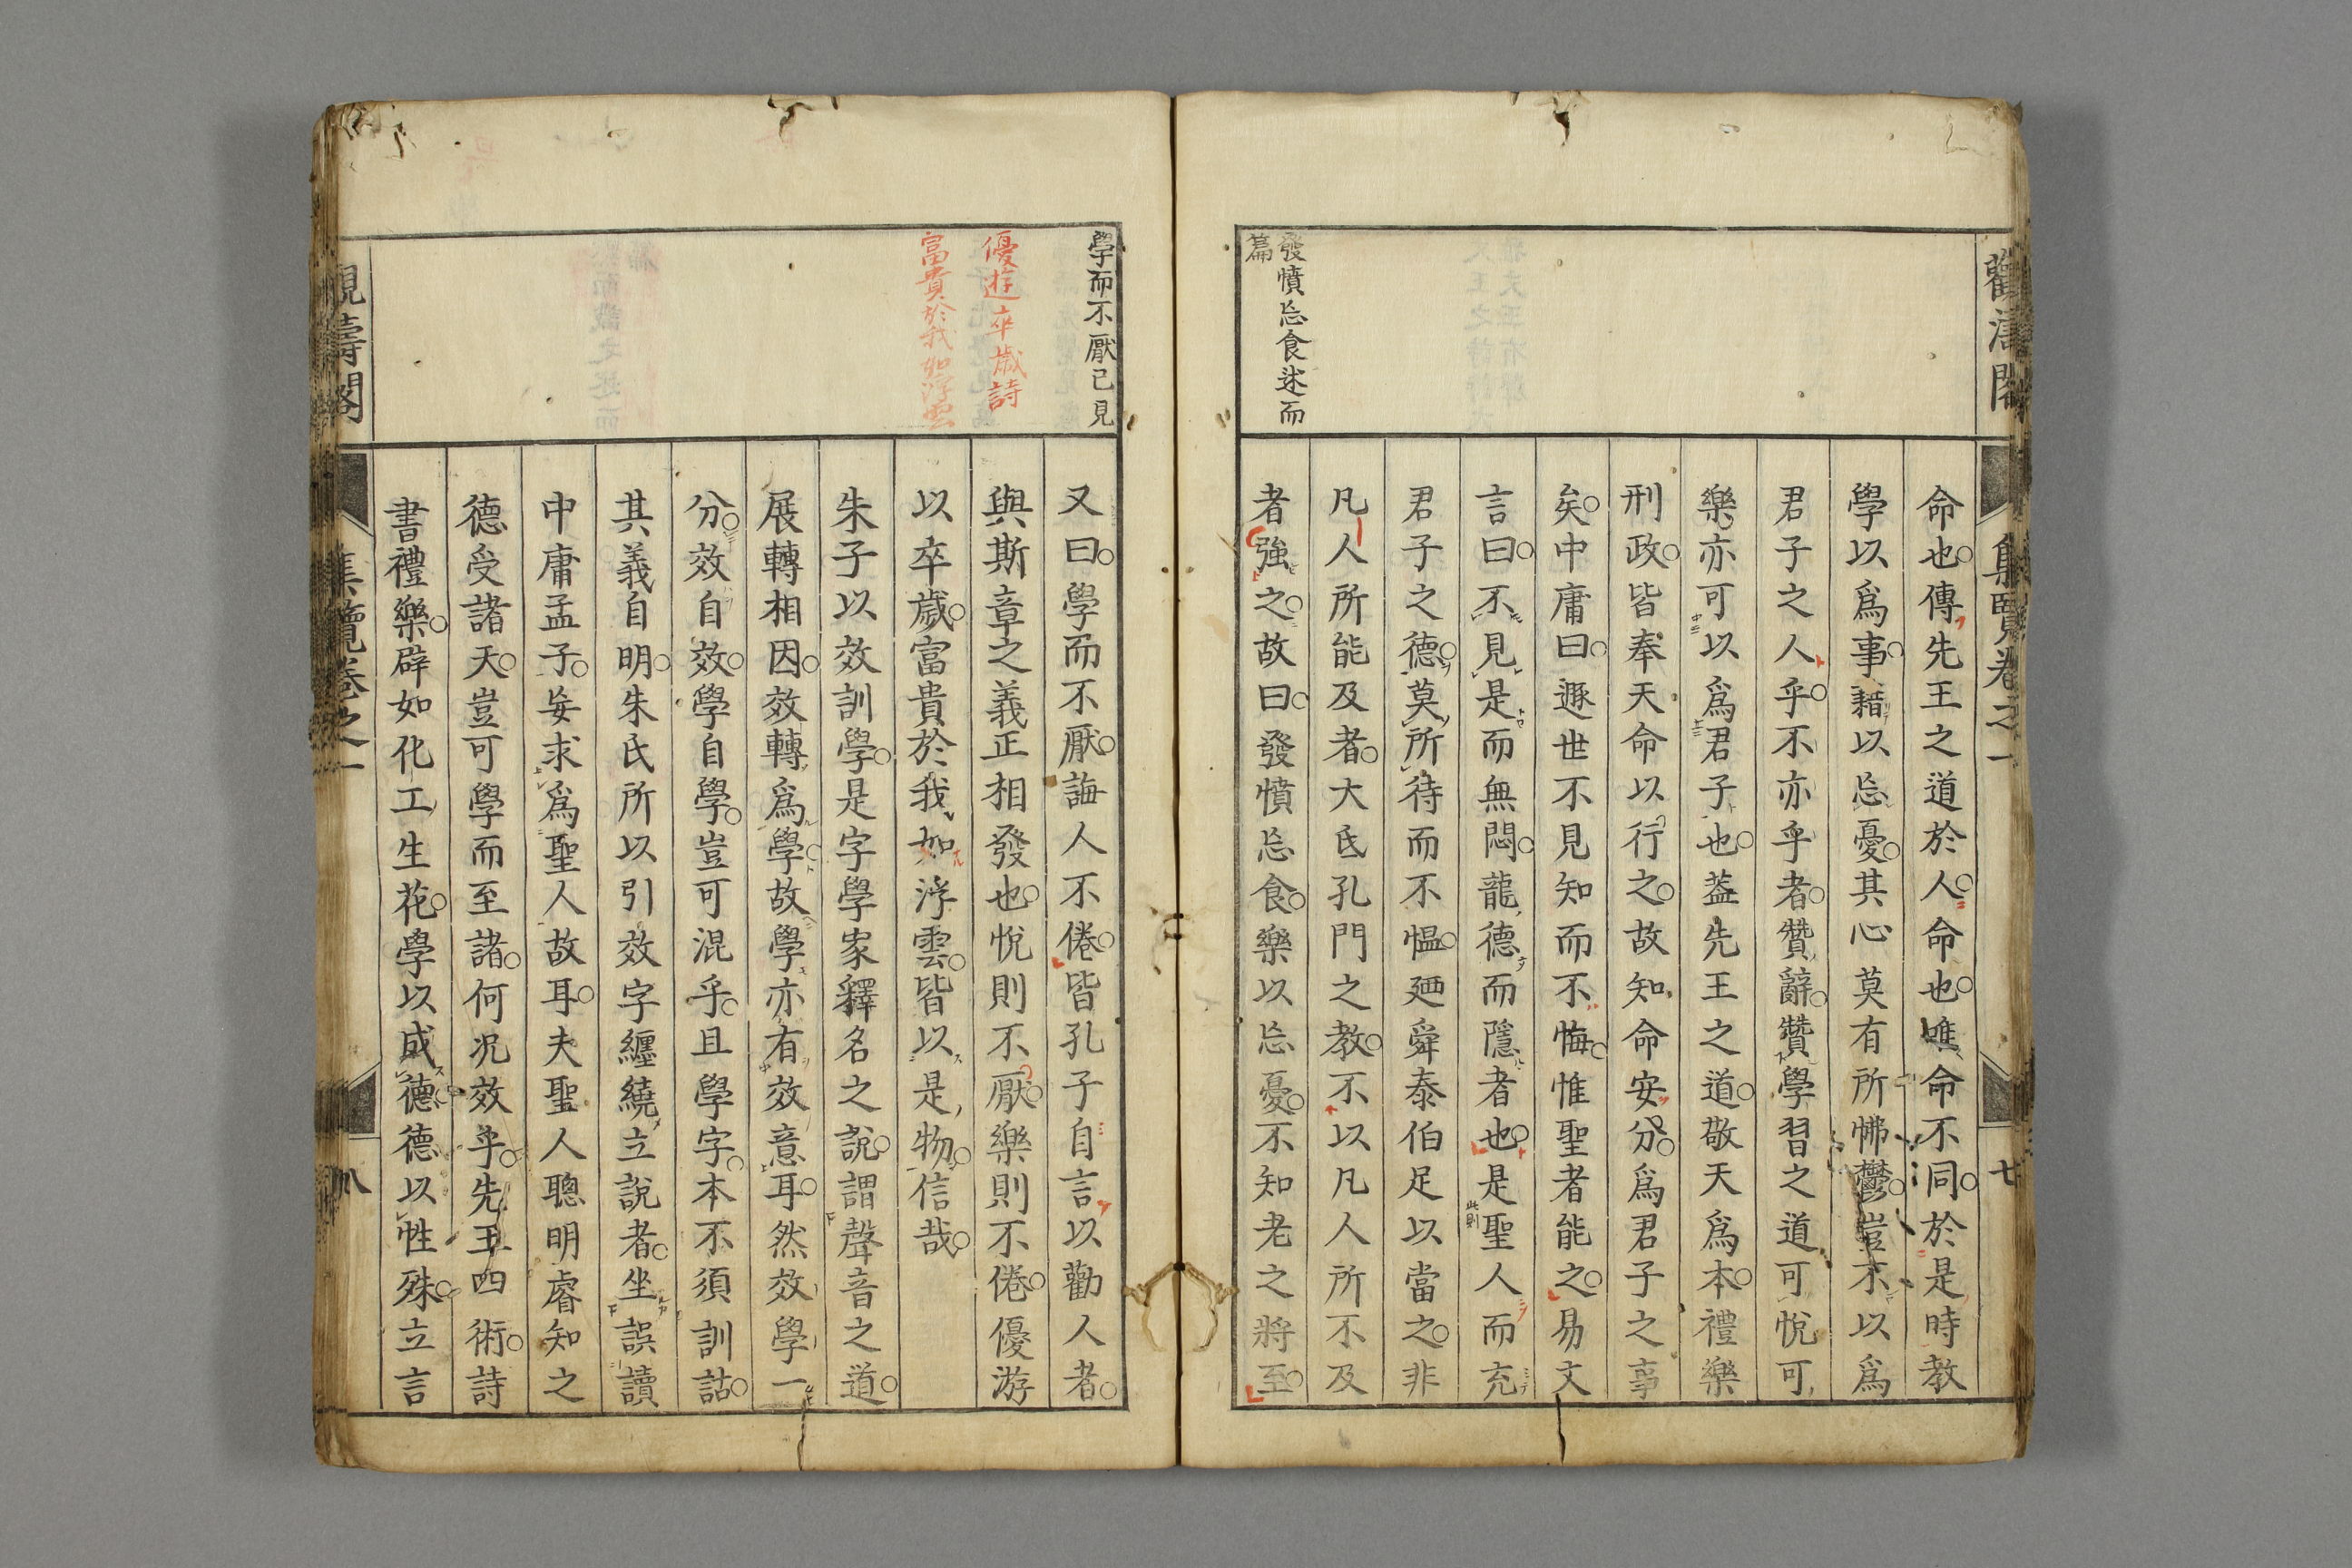 命也傳先王之道於人命也唯命不同於是時教
學以爲事藉以忘憂其心莫有所怫鬱豈不以爲
君子之人乎不亦乎者贊辭贊學習之道可悅可
樂亦可以爲君子也葢先王之道敬天爲本禮樂
刑政皆奉天命以行之故知命安分爲君子之事
矣中庸曰遯世不見知而不悔惟聖者能之易文
言曰不見是而無悶龍德而隱者也是聖人而充
此則
君子之德莫所待而不慍廼舜泰伯足以當之非
凡人所能及者大氐孔門之教不以凡人所不及
者強之故曰發憤忘食樂以忘憂不知老之將至
發憤忘食述而
篇
集覽卷之一
七
學而不厭已見
優遊卒歲詩
富貴於我如浮雲
又曰學而不厭誨人不倦皆孔子自言以勸人者
與斯章之義正相發也悅則不厭樂則不倦優游
以卒歲富貴於我如浮雲皆以是物信哉
朱子以效訓學是字學家釋名之說謂聲音之道
展轉相因效轉爲學故學亦有效意耳然效學一
分效自效學自學豈可混乎且學字本不須訓詁
其義自明朱氏所以引效字纏繞立說者坐誤讀
中庸孟子妄求爲聖人故耳夫聖人聰明睿知之
德受諸天豈可學而至諸何況效乎先王四術詩
書禮樂辟如化工生花學以成德德以性殊立言
觀濤閣
集覽卷之一
八